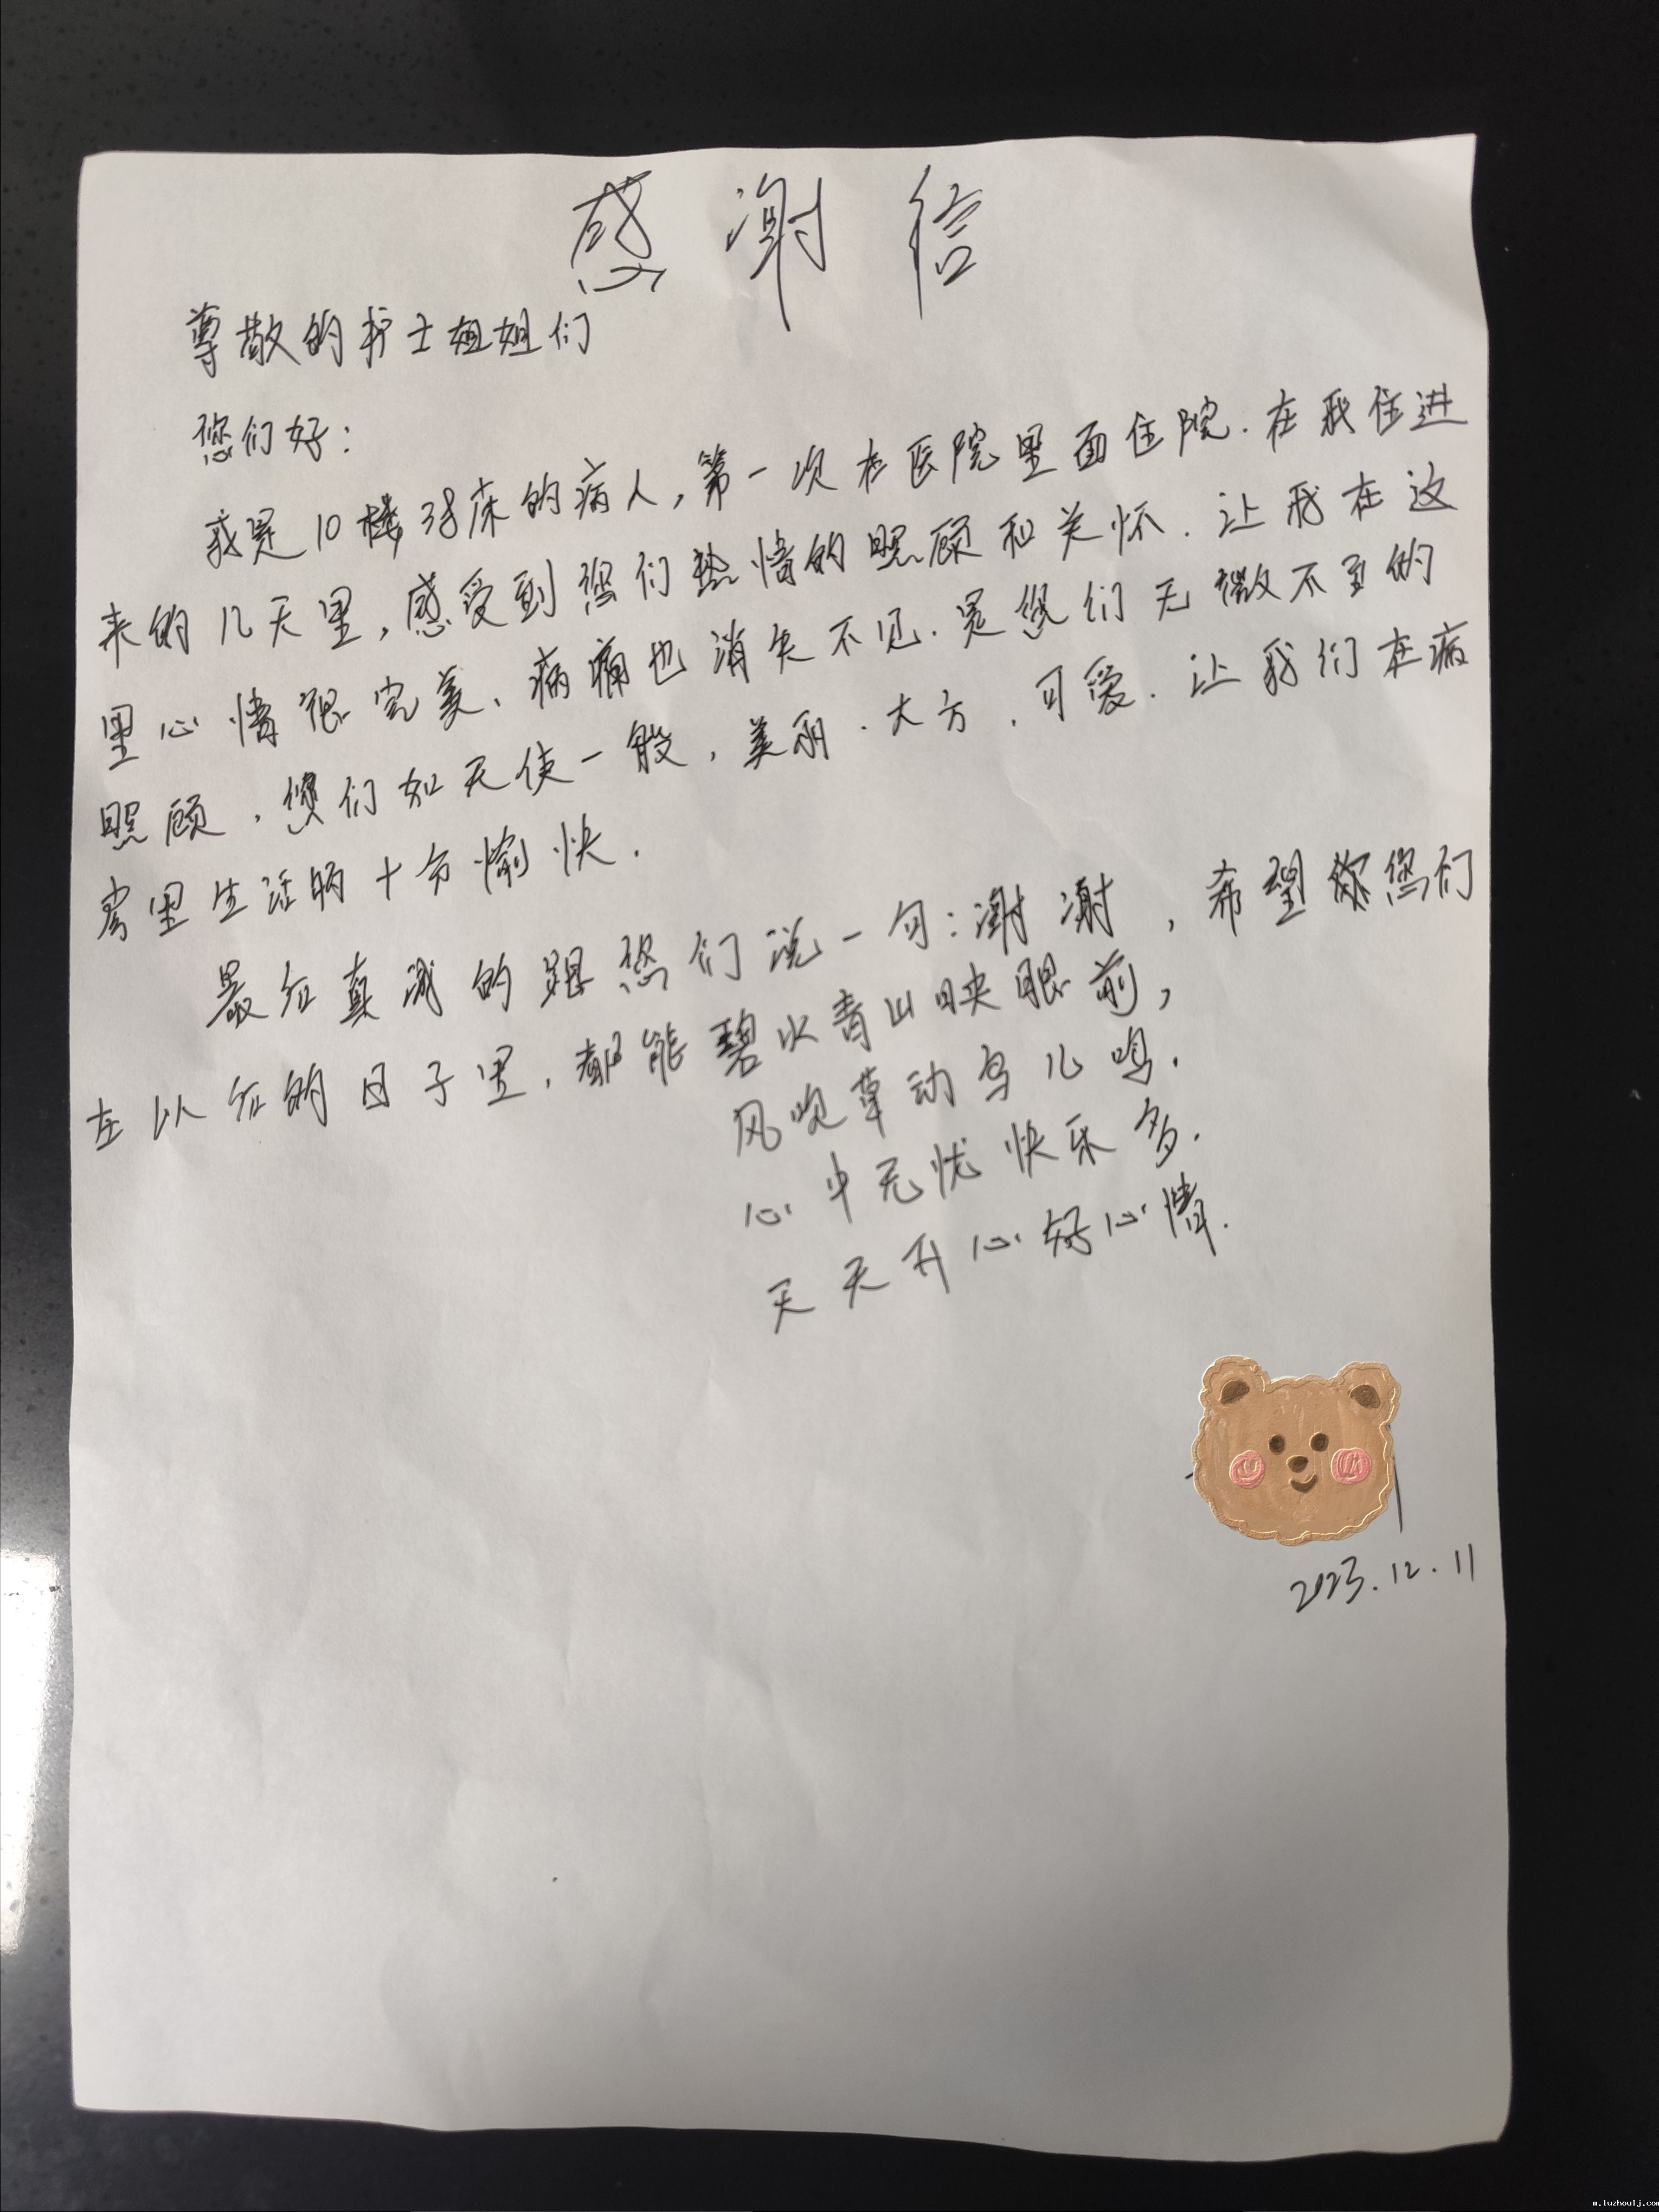 感谢信
尊敬的护士姐姐们
您们好：
我是10楼38床的病人，第一次在医院里面住院．在我住进
来的几天里，感受到您们热情的照顾和关怀．让我在这
里心情很完美、病痛也消失不见．是您们无微不至的
照顾．您们如天使一般，美丽．大方．可爱．让我们在病
房里生活的十分愉快．
最后真诚的跟您们说一句：谢谢，希望你您们
在以后的日子里．都能碧水青山映眼前，
风吹草动鸟儿鸣．
心中无忧快乐多．
天天开心好心情．
2023.12.11
m.luzhoulj.com